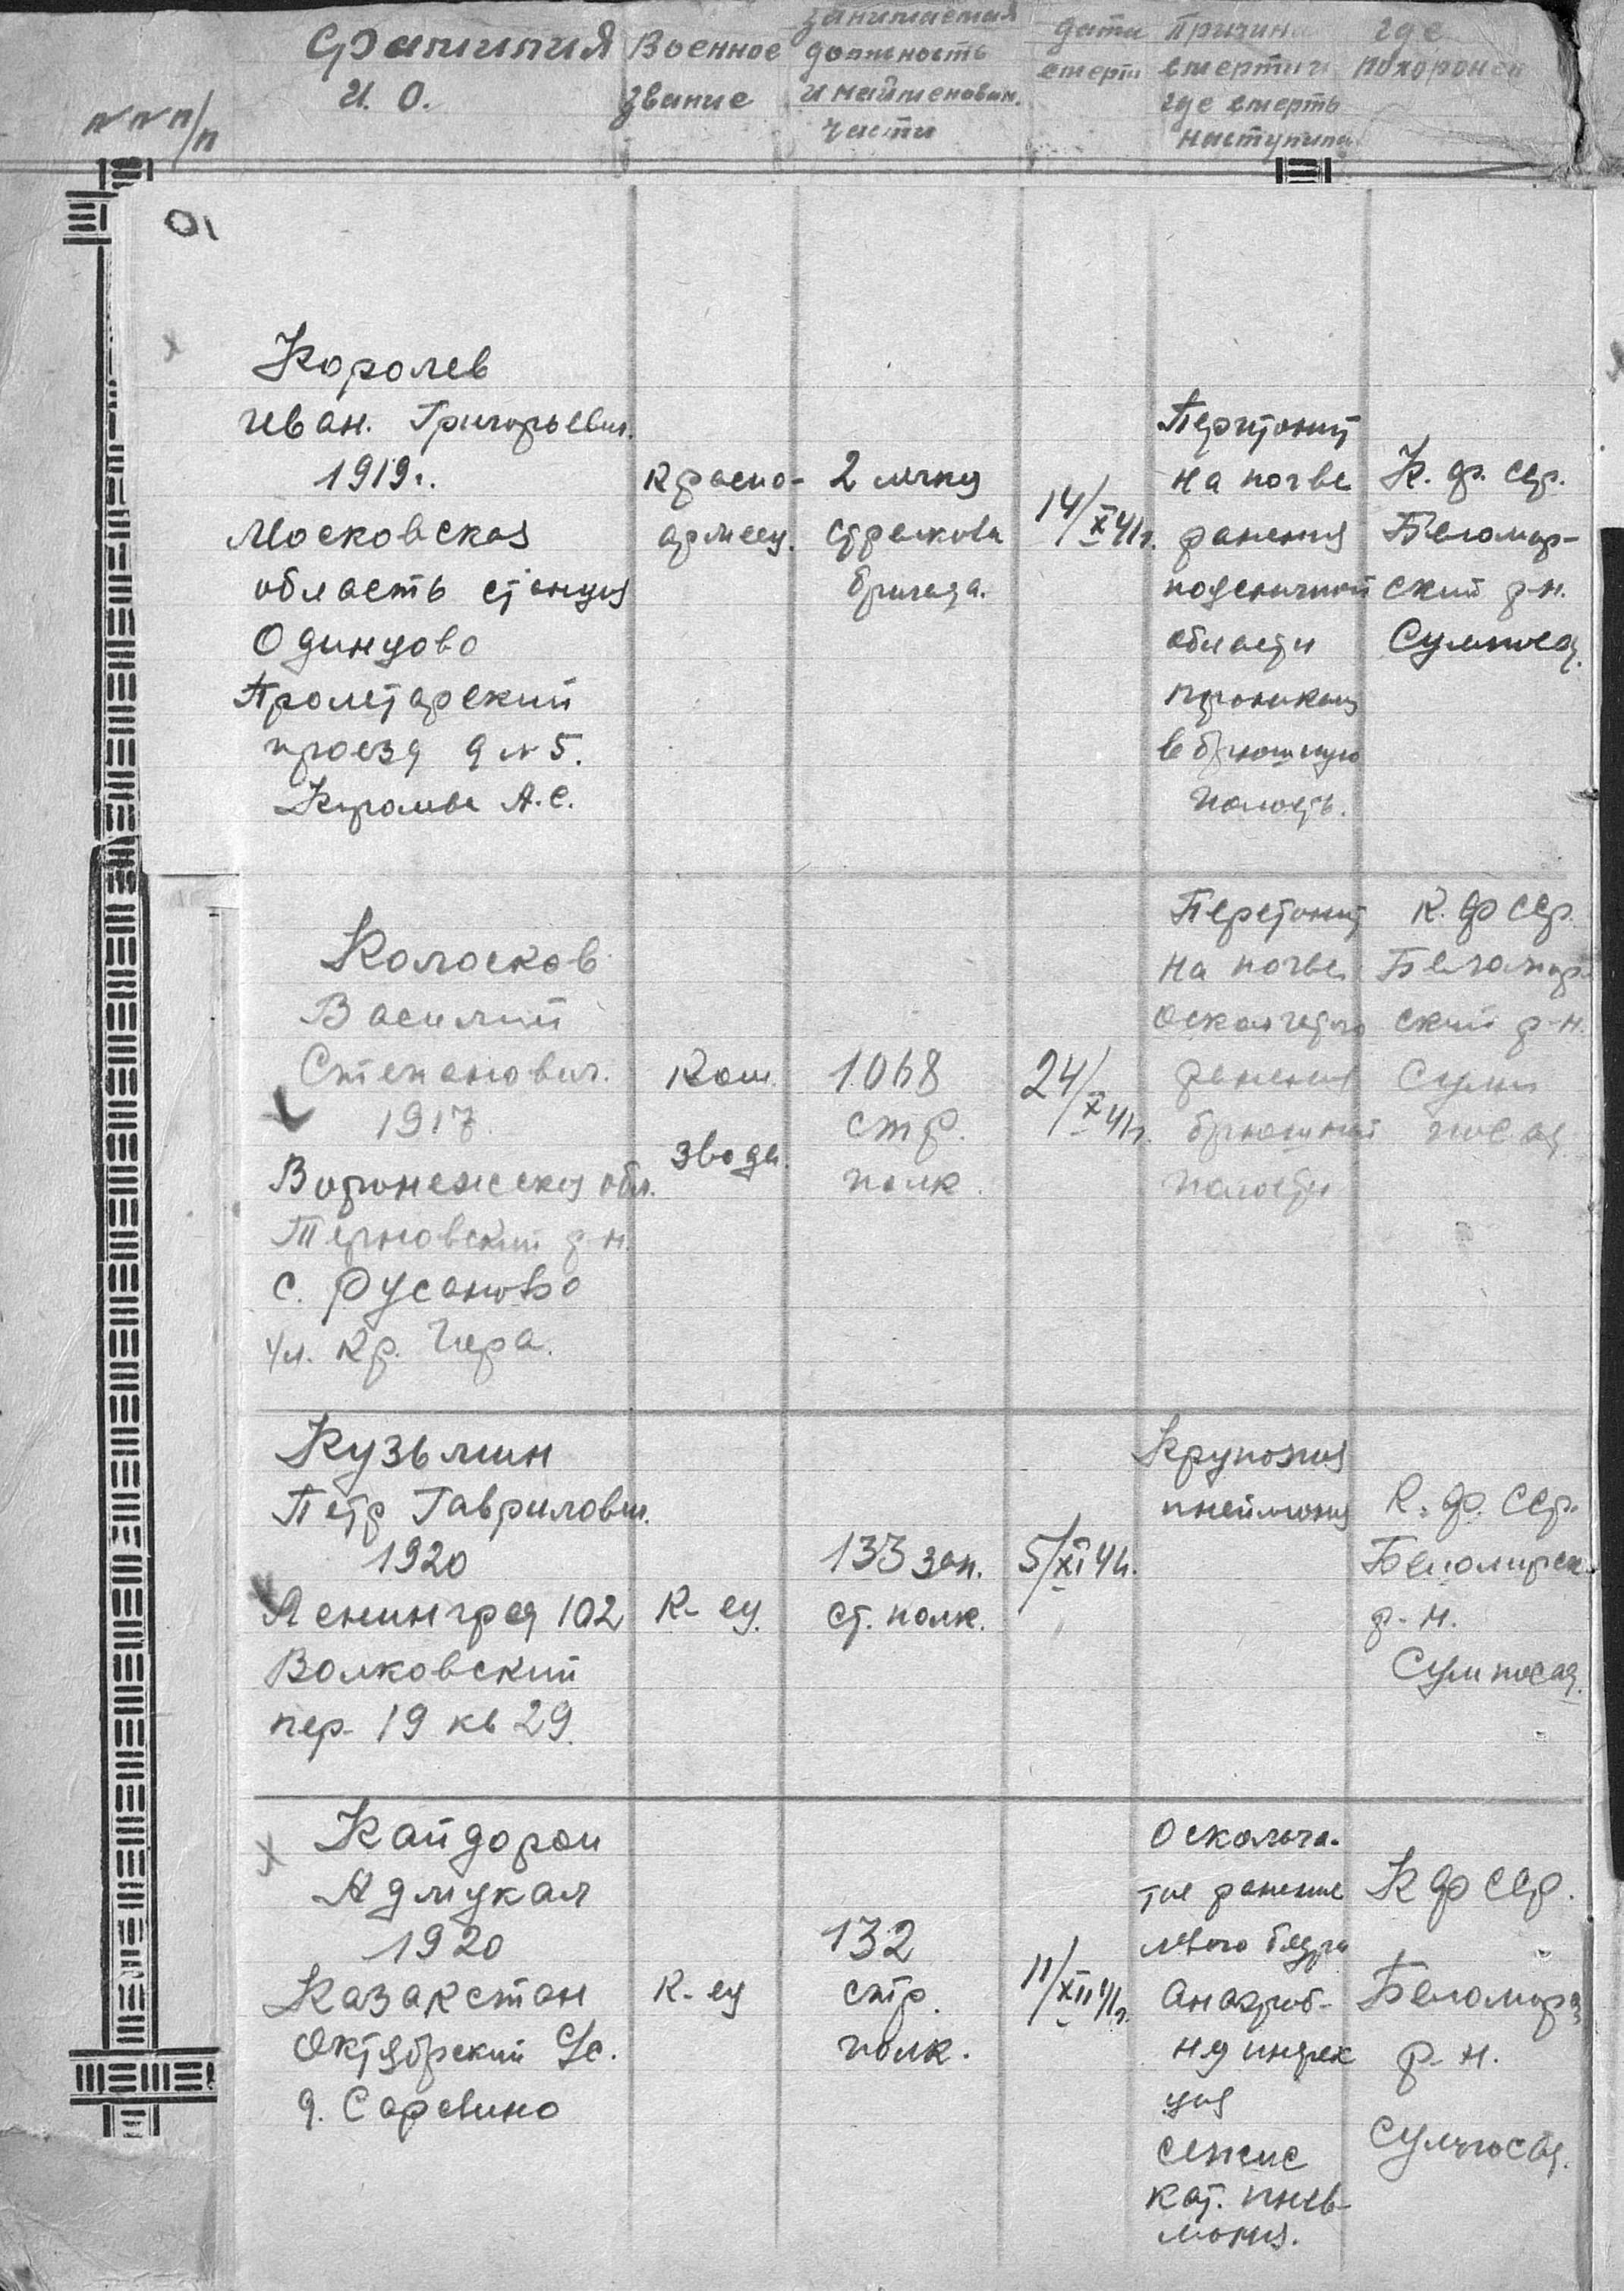 №№ п/п
Фамилия
И. О.
Военное
звание
Занимаемая
должность
и наименован.
части
дата
смерти
Причина
смерти и
где смерть
наступила
где
похоронен
Королев
Иван. Григорьевич.
1919г.
Московская
область станция
Одинцово
Пролетарский
проезд д №5.
А.С.
Красно-
армеец.
2
стрелковая
бригада.
14/X 41г.
Перитонит
на почве
ранения
области
в брюшную
полость.
К. ф. сср.
Беломор-
ский р-н.
Сумпосад.
Колосков
Василий
Степанович.
1917
Воронежская обл.
Терновский р-н.
с. Русаново
ул. Кр.
Ком.
взвода
1068
стр.
полк.
24/X 41г.
Перетонит
на почве
ранения
брюшной
полости
К. ф сср.
Беломор-
ский р-н.
Сум
посад
Кузьмин
Петр Гаврилович.
1920
Ленинград 102
Волковский
пер. 19 кв 29.
К-ец.
133 зап.
ст. полк.
5/XI 41г.
Крупозная
пнеймония
К. ф. сср.
Беломорск.
р-н.
Сумпосад.
Кайдорои
Адмукал
1920
Казакстан
Октябрский
д. Саревино
К-ец
132
стр.
полк.
11/XII 41г.
Осколоча-
тое ранение
левого бедра
анаэроб-
ная инфек
ция
сепсис
кат. пнев-
мония.
К ф сср.
Беломорс
р-н.
Сумпосад.